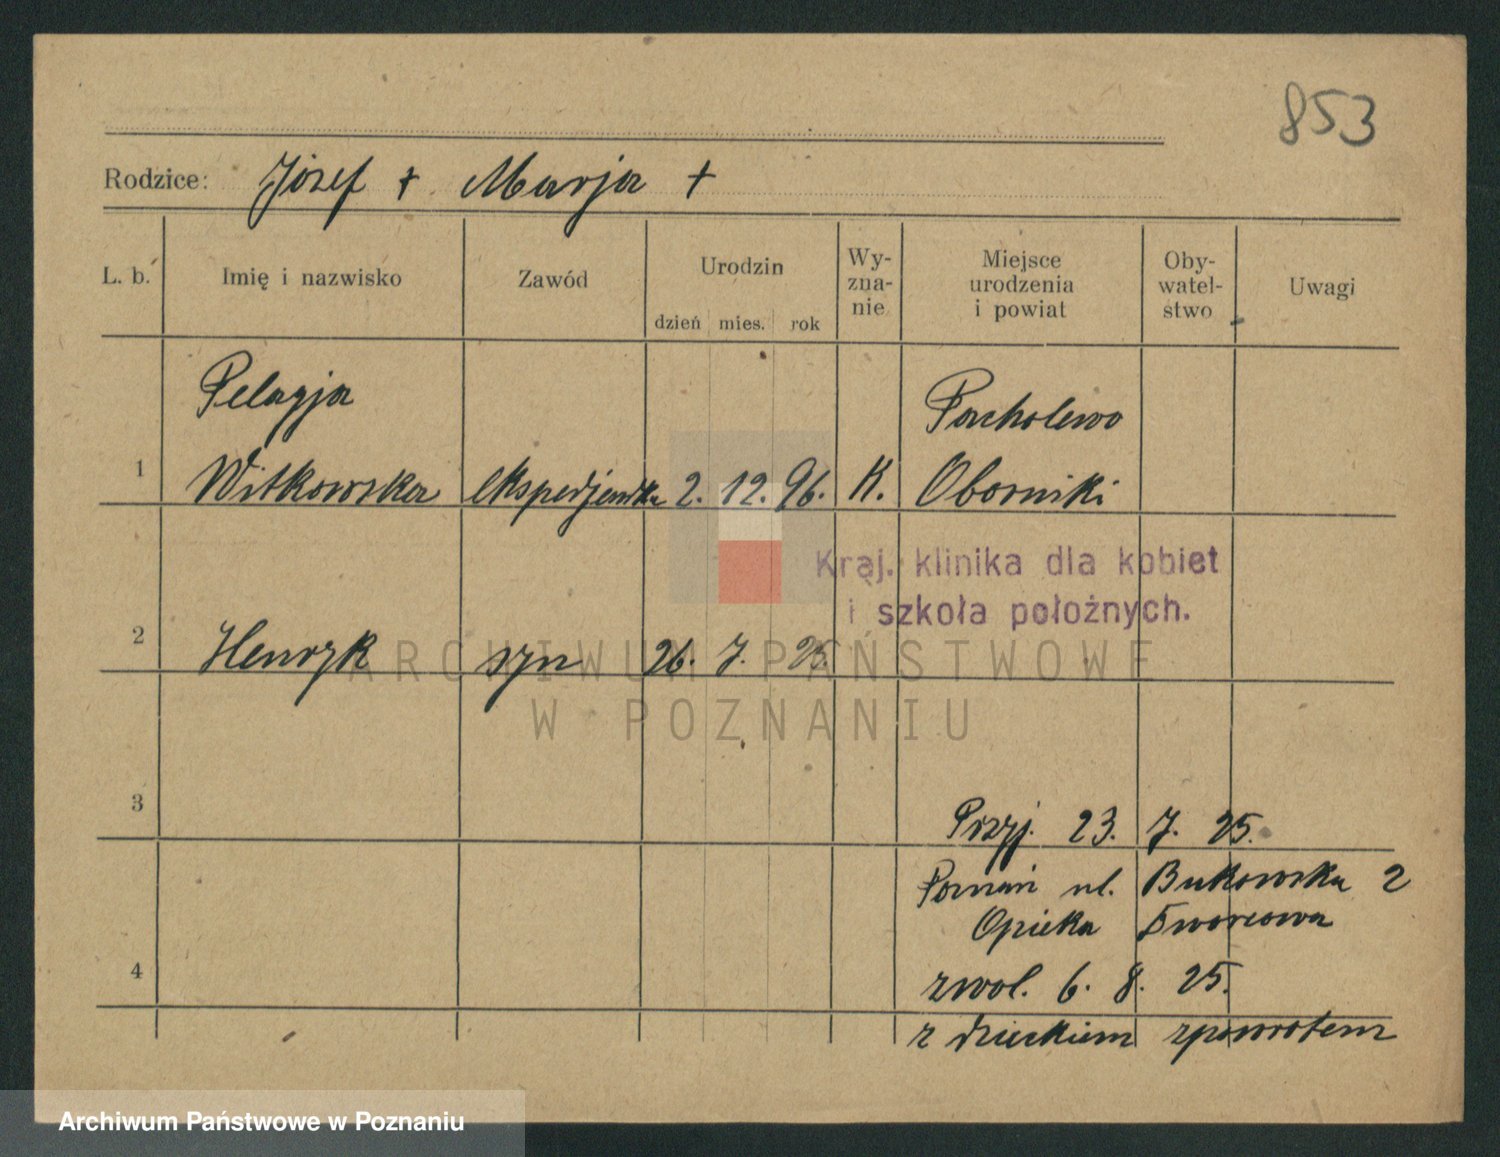 853
Rodzice: Józef + Marja +
L. b. Imię i nazwisko Zawód Urodzin dzień mies. rok Wy-zna-nie Miejsce urodzenia i powiat Oby-watel-stwo Uwagi
Pelagja Pacholewo
1 Witkowska ekspedjentka 2. 12. 96. K. Oborniki
Kraj. klinika dla kobiet
i szkoła położnych.
2 Henryk syn 26. 7. 25.
ARCHIWUM PAŃSTWOWE
W POZNANIU
3 Przyj. 23. 7. 25.
Poznań ul. Bukowska 2
Opieka Dworcowa
4 zwol. 6. 8. 25.
z dzieckiem zpowrotem
Archiwum Państwowe w Poznaniu